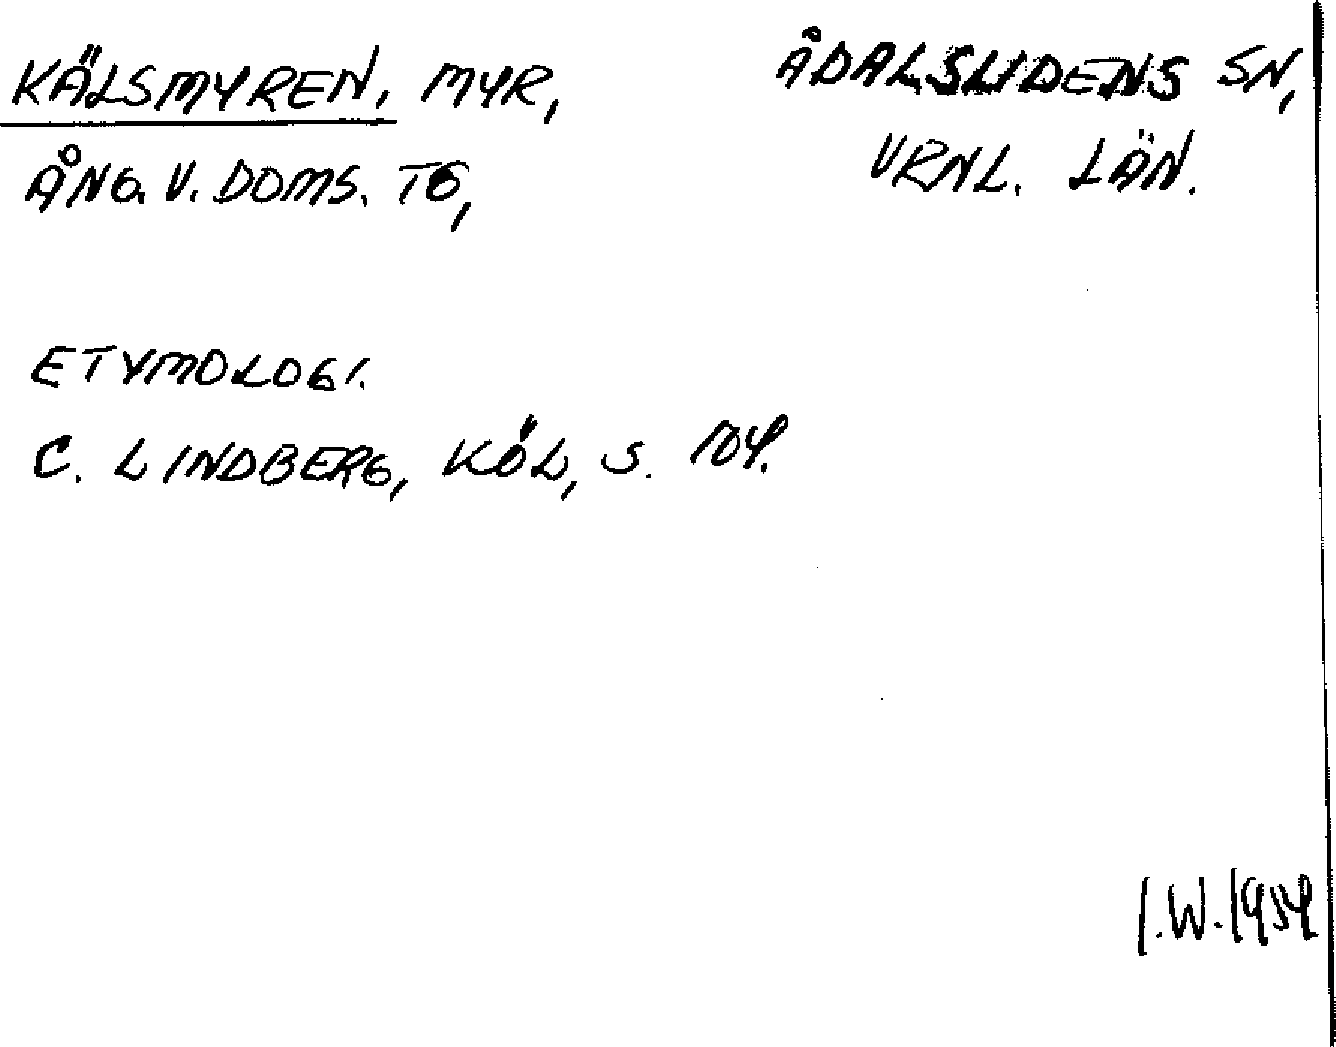 KÄLSMYREN, MYR,
ÅNG. V. DOMS. TG,
ÅDALSLIDENS SN,
VRNL. LÄN.
ETYMOLOGI.
C. LINDBERG, KÖL, S. 104.
I.W. 1959